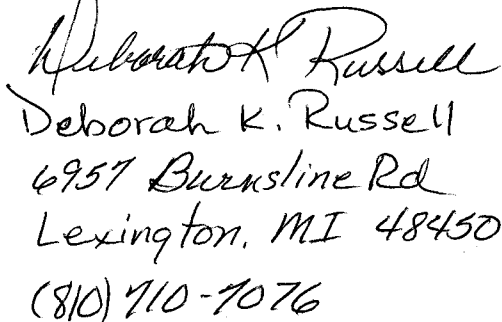 Deborah K Russell
Deborah K. Russell
6957 Burnsline Rd
Lexington, MI 48450
(810) 710-7076